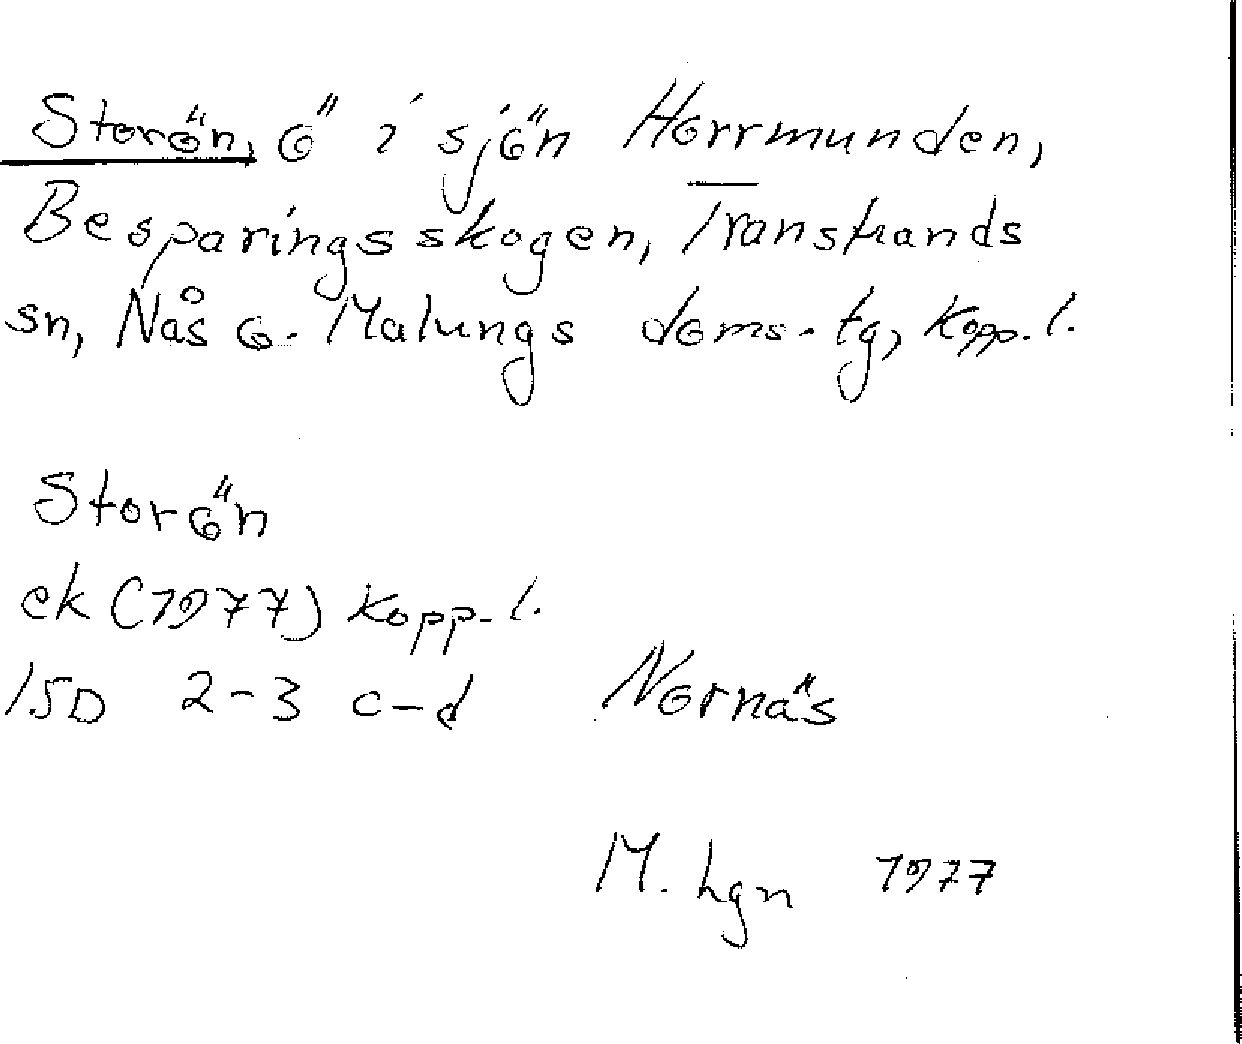 Storön, ö i sjön Horrmunden,
Besparingsskogen, Transtrands
sn, Nås o. Malungs doms. tg, Kopp. l.
Storön
ek (1977) Kopp. l.
15D 2-3 c-d Nornäs
M. Lgn 1977